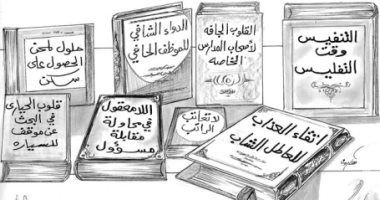 التنفيس
وقت
التفليس
القلوب الجافه
لأصحاب المدارس
الخاصه
الدواء الشافي
للموظف الحافي
حلول لمحن
الحصول على
سكن
انتقاء العذاب
للعاطل الشاب
لا تعاتب
الراتب
اللامعقول
في محاولة
مقابلة
مسؤول
قلوب الحيارى
في البحث
عن موقف
للسياره